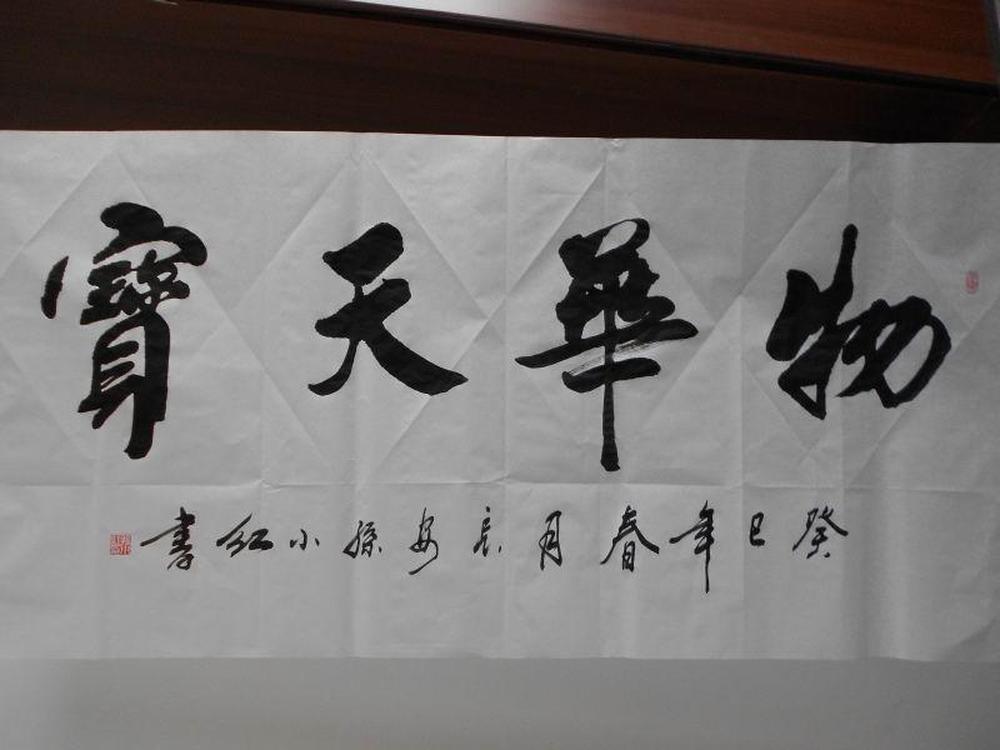 物華天寶
癸巳年春月長安孫小紅書